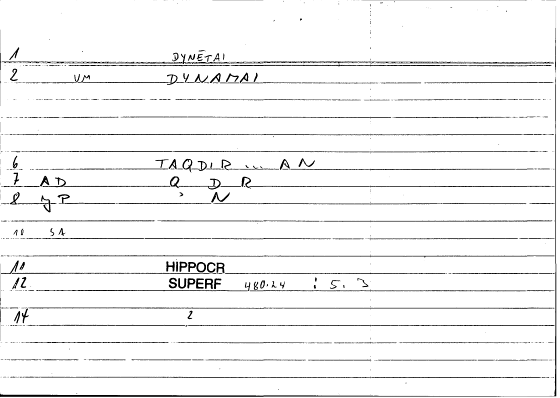 1 DYNĒTAI
2 VM DYNAMAI
6 TAQDIR ... AN
7 AD Q D R
8 yP ʾ N
10 SA
10 HIPPOCR
12 SUPERF 480.24 : 5. 3
14 2